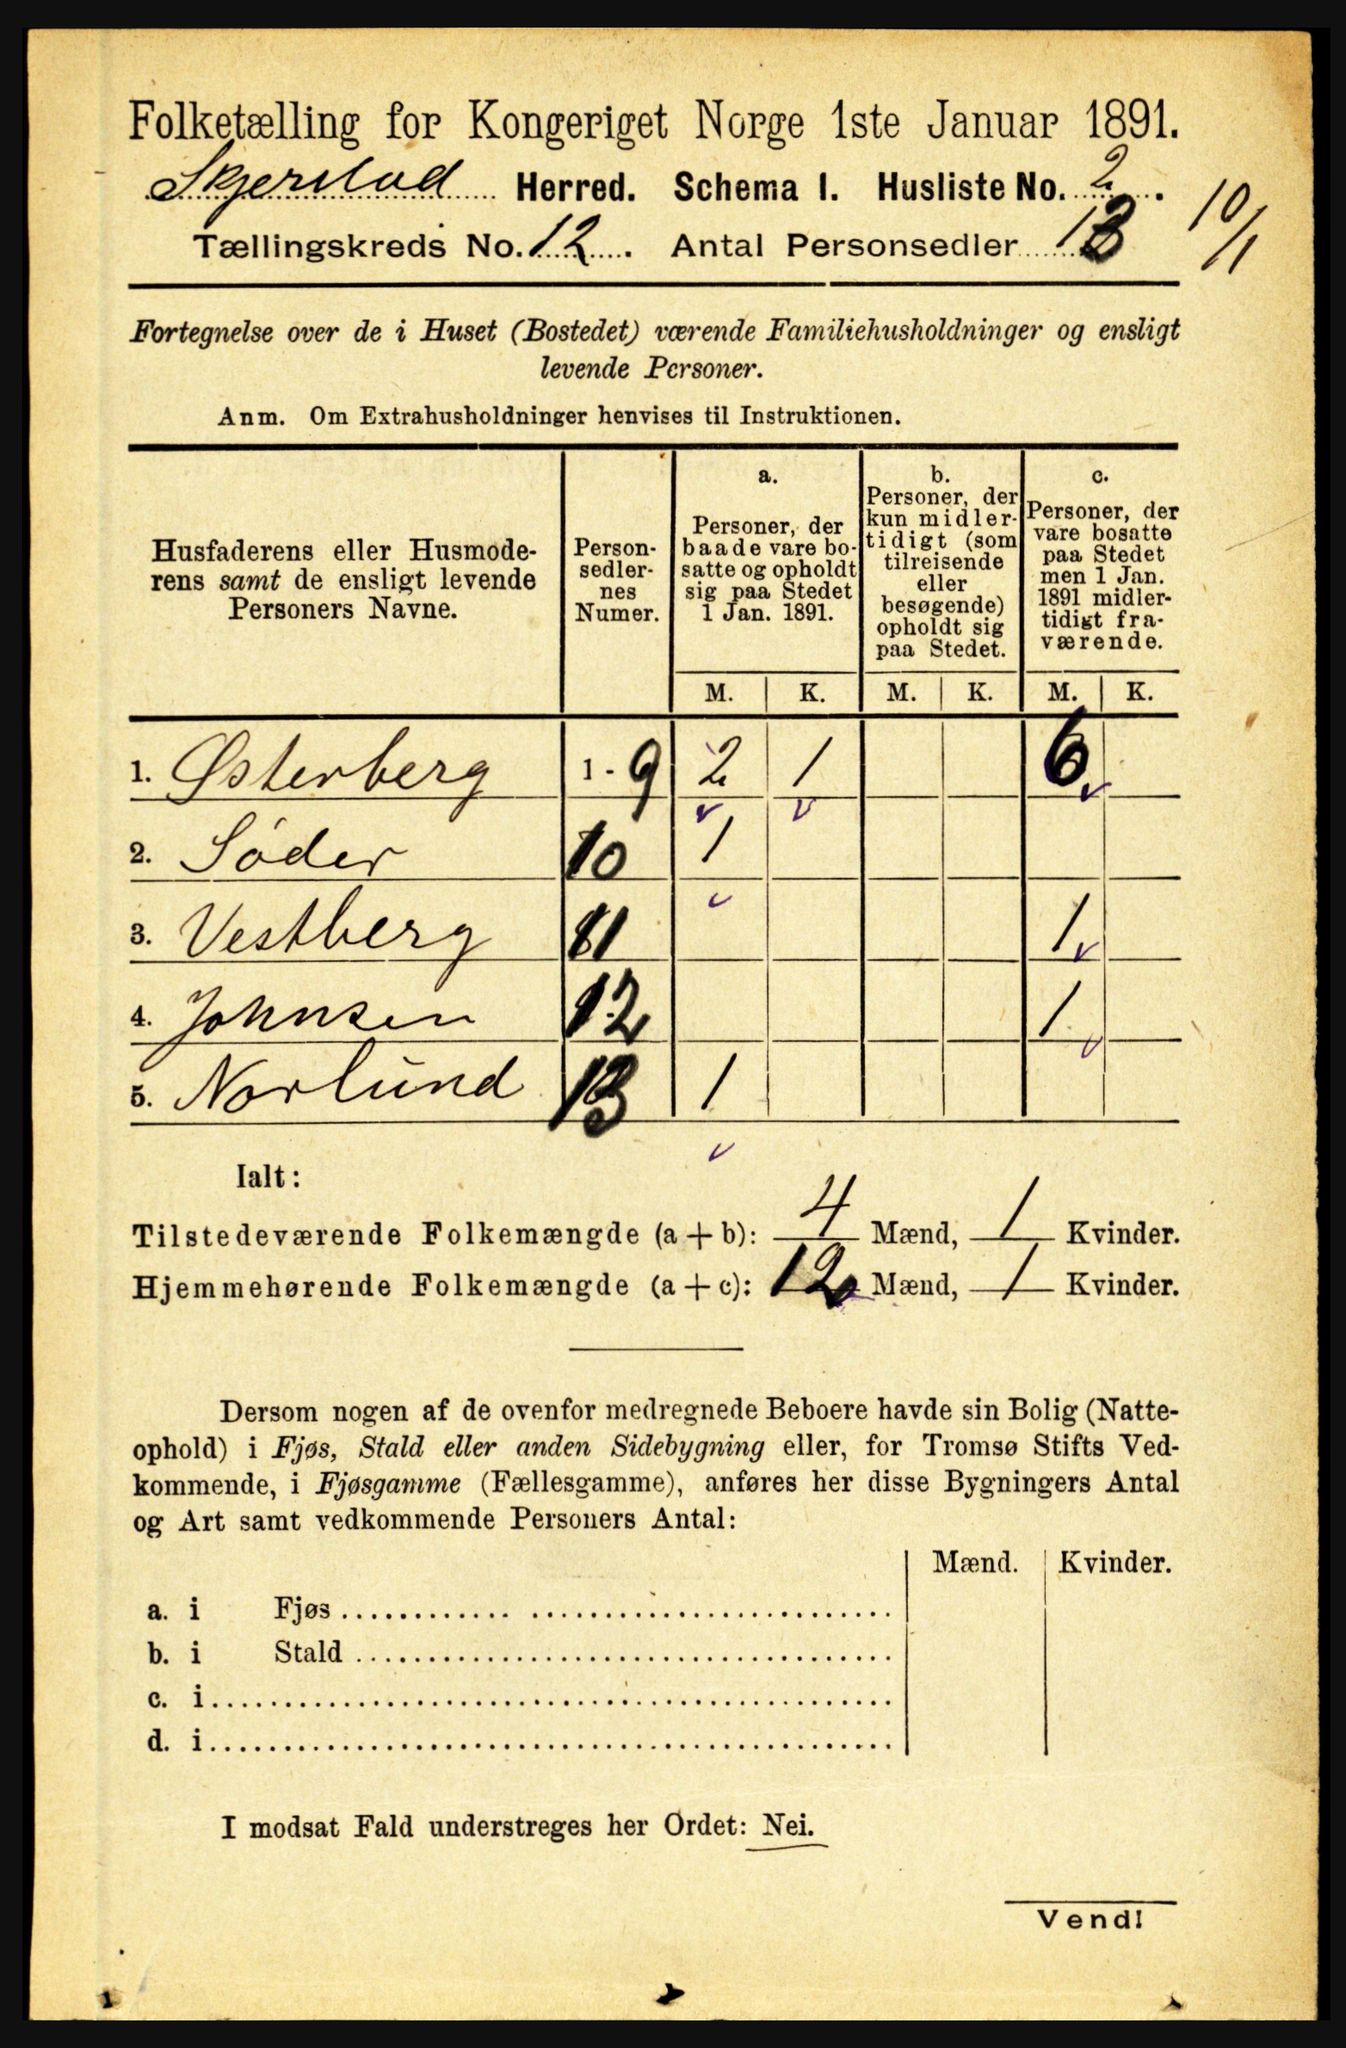 Folketælling for Kongeriget Norge 1ste Januar 1891.
Skjerstad Herred. Schema I. Husliste No. 2.
Tællingskreds No. 12. Antal Personsedler 13
10/1
Fortegnelse over de i Huset (Bostedet) værende Familiehusholdninger og ensligt
levende Personer.
Anm. Om Extrahusholdninger henvises til Instruktionen.
Husfaderens eller Husmode-
rens samt de ensligt levende
Personers Navne.
Person-
sedler-
nes
Numer.
a.
Personer, der
baade vare bo-
satte og opholdt
sig paa Stedet
1 Jan. 1891.
b.
Personer, der
kun midler-
tidigt (som
tilreisende
eller
besøgende)
opholdt sig
paa Stedet.
c.
Personer, der
vare bosatte
paa Stedet
men 1 Jan.
1891 midler-
tidigt fra-
værende.
M. K. M. K. M. K.
1. Østerberg 1-9 2 1 6
2. Söder 10 1
3. Vestberg 11 1
4. Johnsen 12 1
5. Norlund 13 1
Ialt:
Tilstedeværende Folkemængde (a + b): 4 Mænd, 1 Kvinder.
Hjemmehørende Folkemængde (a + c): 12 Mænd, 1 Kvinder.
Dersom nogen af de ovenfor medregnede Beboere havde sin Bolig (Natte-
ophold) i Fjøs, Stald eller anden Sidebygning eller, for Tromsø Stifts Ved-
kommende, i Fjøsgamme (Fællesgamme), anføres her disse Bygningers Antal
og Art samt vedkommende Personers Antal:
Mænd. Kvinder.
a. i Fjøs
b. i Stald
c. i
d. i
I modsat Fald understreges her Ordet: Nei.
Vend!